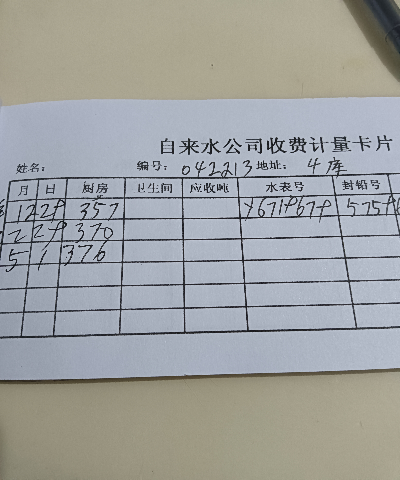 自来水公司收费计量卡片
姓名: 编号: 042213 地址: 4库
月 日 厨房 卫生间 应收吨 水表号 封铅号
12 29 357
2 29 370
5 1 376